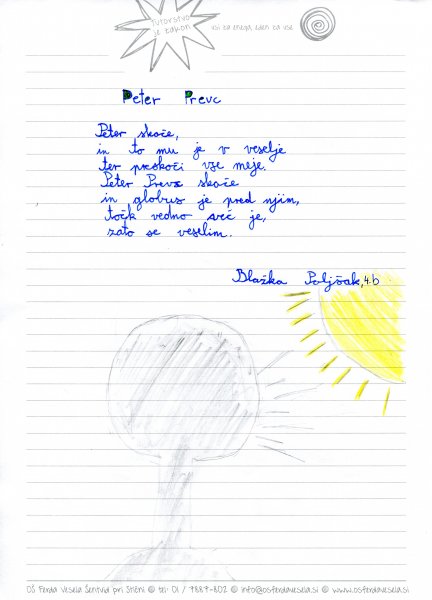 Tutorstvo
je zakon
vsi za enega, eden za vse
Peter Prevc
Peter skoče,
in to mu je v veselje
ter preskoči vse meje.
Peter Prevc skače
in globus je pred njim,
točk vedno več je,
zato se veselim.
Blažka Poljšak, 4.b
OŠ Ferda Vesela Šentvid pri Stični @ tel: 01 / 7887-802 @ info@osferdavesela.si @ www.osferdavesela.si